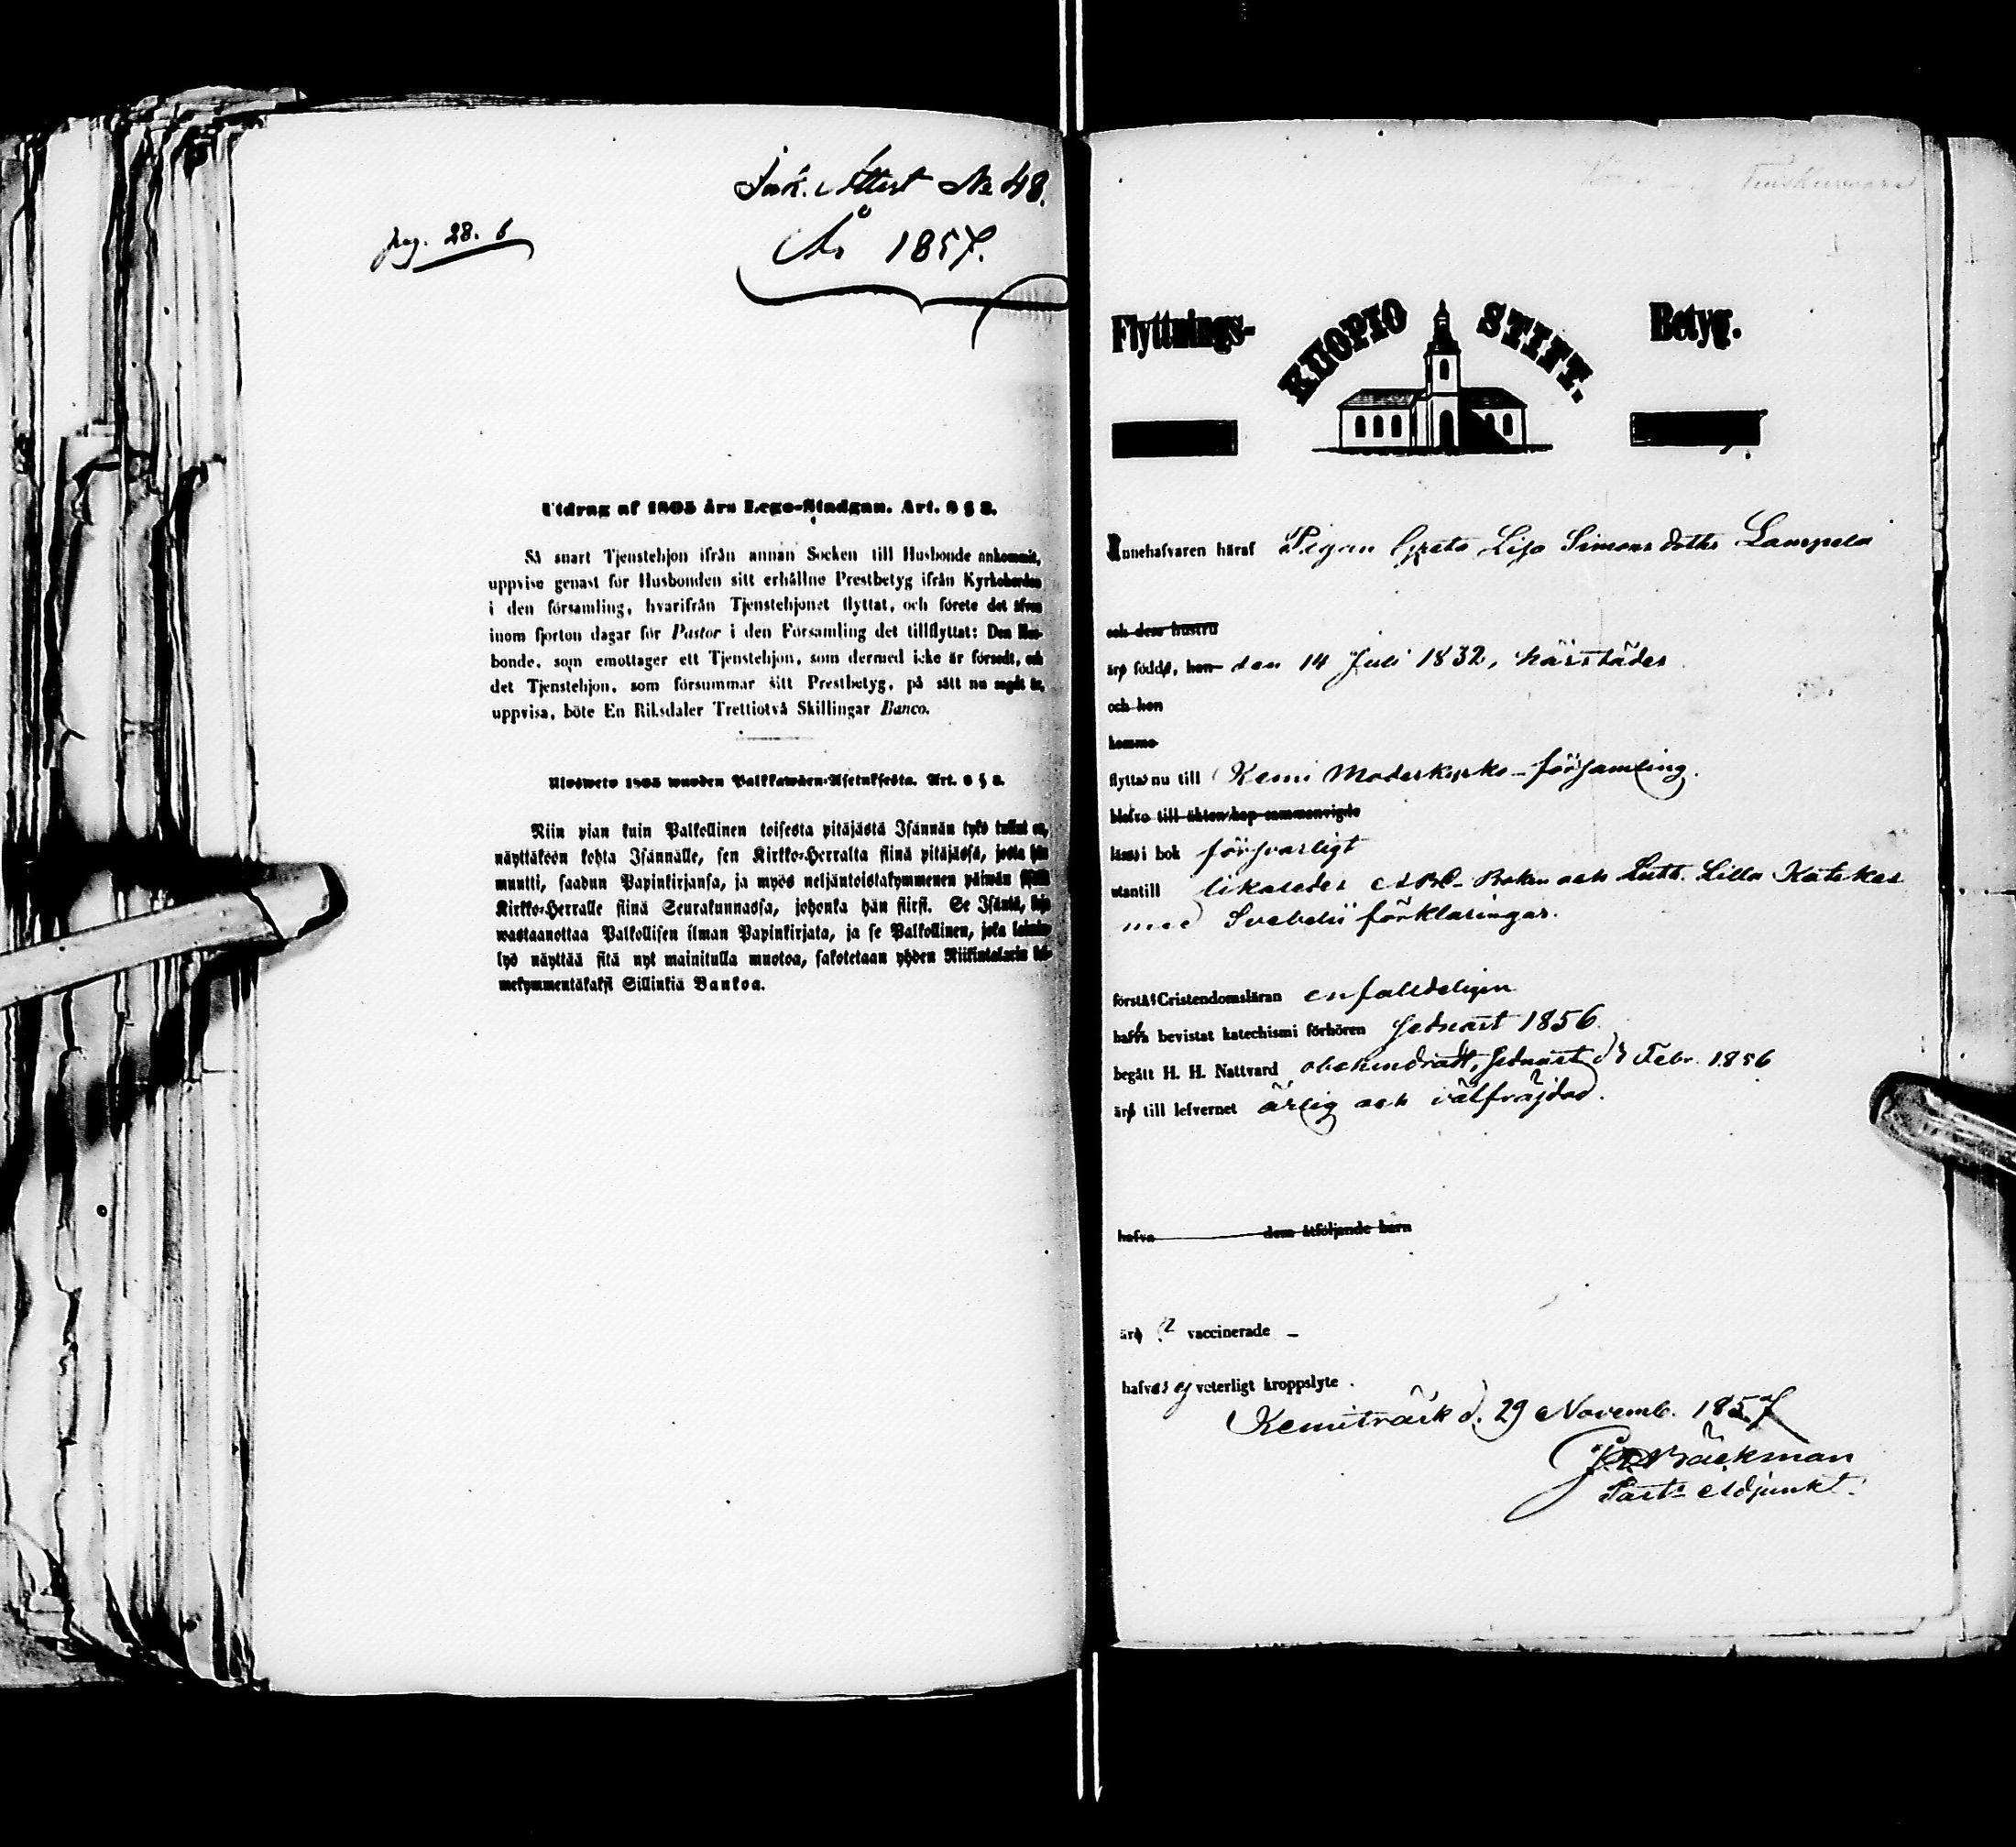 Ink. Attest No 48.
År 1857.
pag. 28. 6
Utdrag af 1805 års Lego-Stadgan. Art. 6 § 8.
Så snart Tjenstehjon ifrån annan Socken till Husbonde ankommit,
uppvise genast för Husbonden sitt erhållne Prestbetyg ifrån Kyrkoherden
i den församling, hvarifrån Tjenstehjonet flyttat, och förete det äfven
inom fjorton dagar för Pastor i den Församling det tillflyttat: Den Hus-
bonde, som emottager ett Tjenstehjon, som dermed icke är försedt, och
det Tjenstehjon, som försummar sitt Prestbetyg, på sätt nu sagdt är,
uppvisa, böte En Riksdaler Trettiotvå Skillingar Banco.
Ulosweto 1805 wuoden Palkkawäen-Asetuksesta. Art. 6 § 8.
Niin pian kuin Palkollinen toisesta pitäjästä Isännän tykö tullut on,
näyttäköön kohta Isännälle, sen Kirkko-Herralta siinä pitäjässä, josta hän
muutti, saadun Papinkirjansa, ja myös neljäntoistakymmenen päiwän
Kirkko-Herralle siinä Seurakunnassa, johonka hän siirsi. Se Isäntä, joka
wastaanottaa Palkollisen ilman Papinkirjata, ja se Palkollinen, joka laimin-
lyö näyttää sitä nyt mainitulla muotoa, sakotetaan yhden Riikintalarin kol-
mekymmentäkaksi Sillinkiä Bankoa.
Flyttnings- KUOPIO STIFT. Betyg.
Innehafvaren häraf Pigan Greta Lisa Simonsdotter Lampela
och dess hustru
äro födde, han den 14 Juli 1832, härstädes
och hon
komme
flyttar nu till Kemi Moderkyrko-församling.
blefvo till äktenskap sammanvigde
läser i bok försvarligt
utantill likaledes ABC-Boken och Luth. Lilla Kateches
med Svebelii förklaringar.
förstår Cristendomsläran enfaldeligen
hafva bevistat katechismi förhören sednast 1856
begått H. H. Nattvard obehindradt, sednast d Febr. 1856
äro till lefvernet ärlig och välfräjdad.
hafva dem åtföljande barn
äro vaccinerade –
hafva ej veterligt kroppslyte.
Kemiträsk d. 29 Novemb. 1857
Bäckman
Past: Adjunkt.